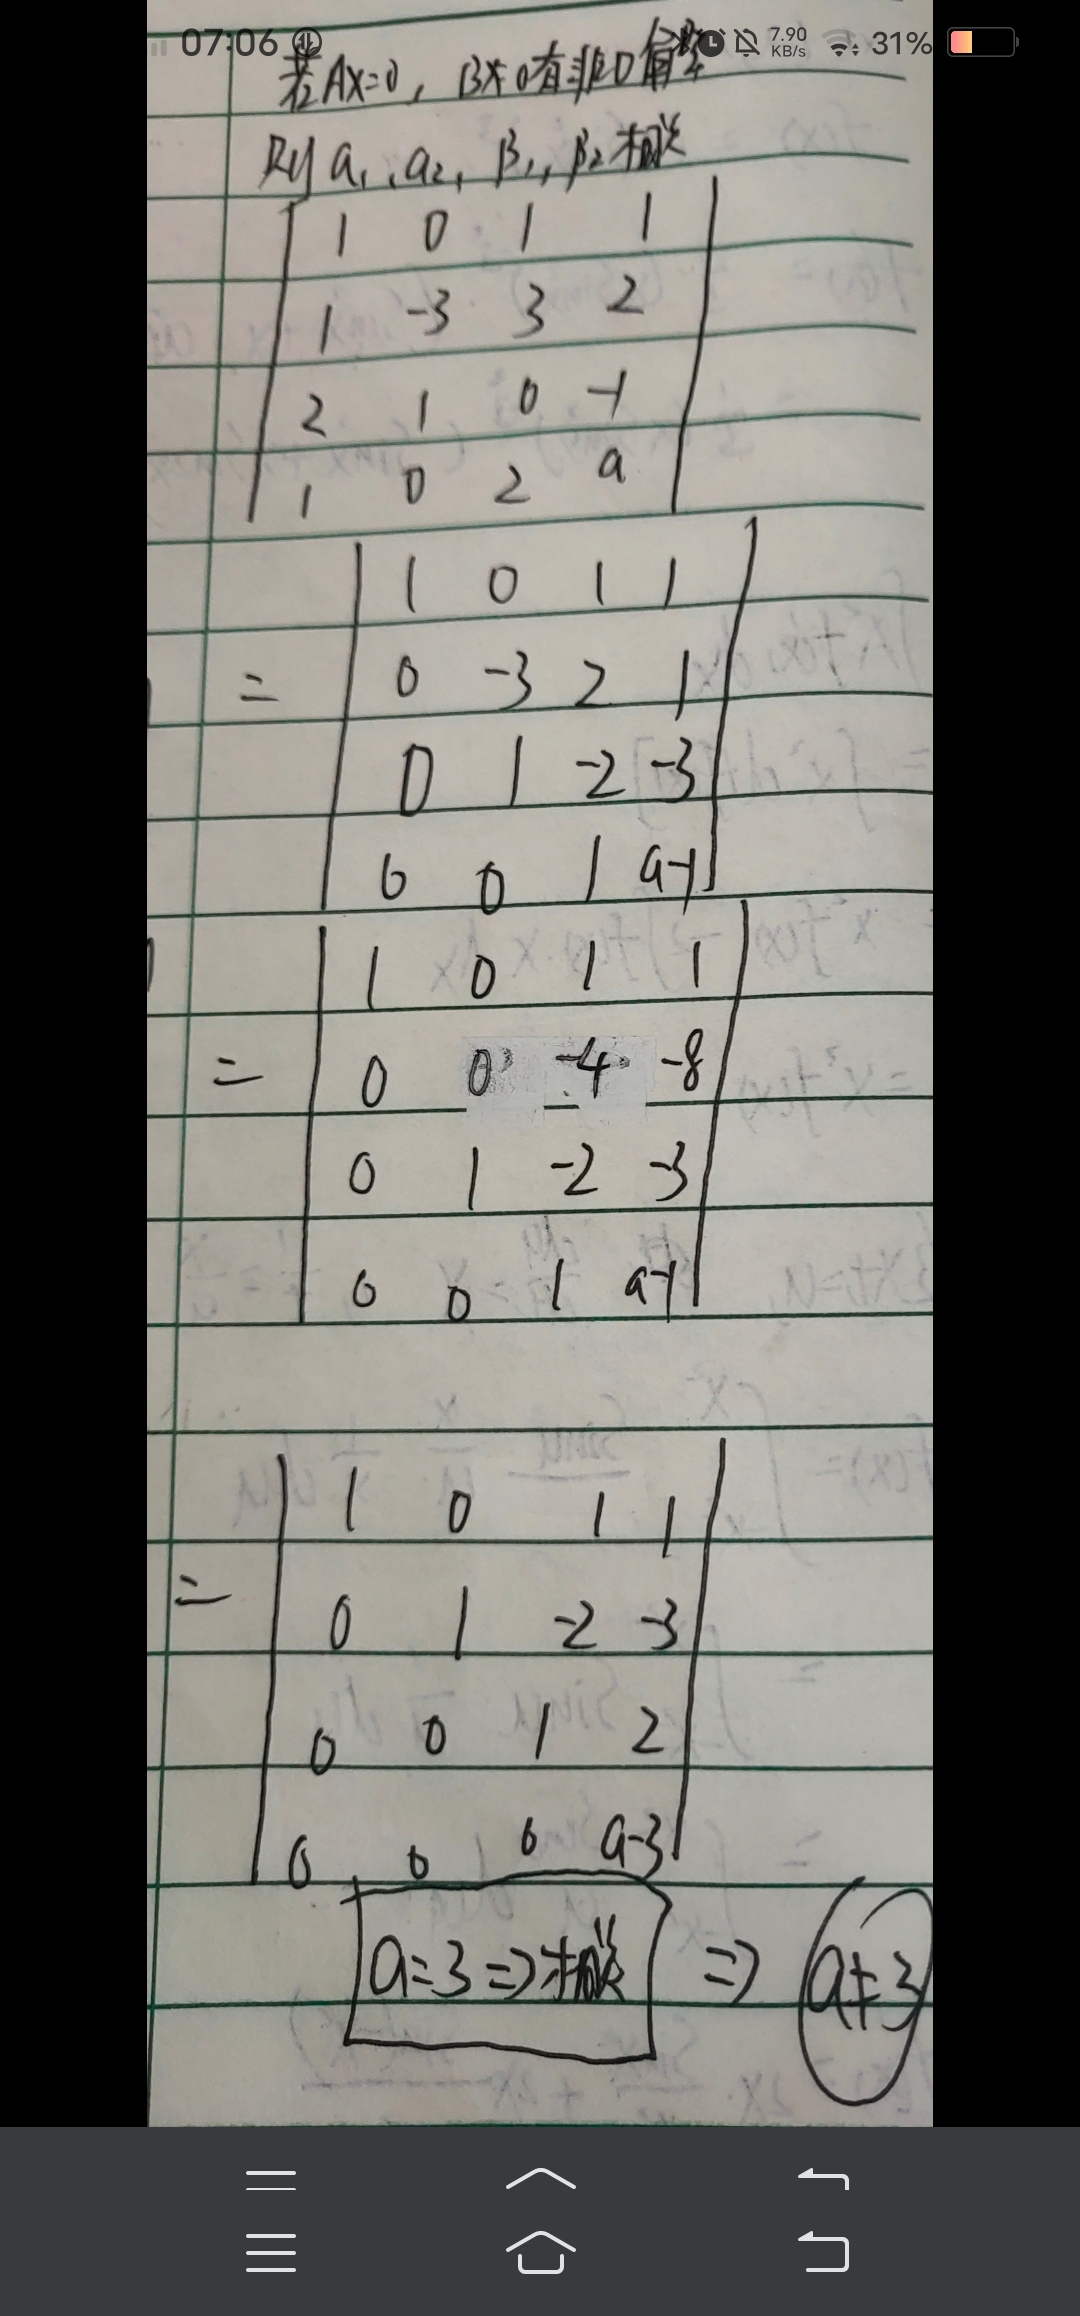 07:06 7.90 KB/s 31%
若AX=0, BX=0有非0解
则 a₁, a₂, β₁, β₂ 相关
1 0 1 1
1 -3 3 2
2 1 0 -1
1 0 2 a
1 0 1 1
= 0 -3 2 1
0 1 -2 -3
0 0 1 a-1
1 0 1 1
= 0 0 -4 -8
0 1 -2 -3
0 0 1 a-1
1 0 1 1
= 0 1 -2 -3
0 0 1 2
0 0 0 a-3
a=3 => 相关 => a≠3